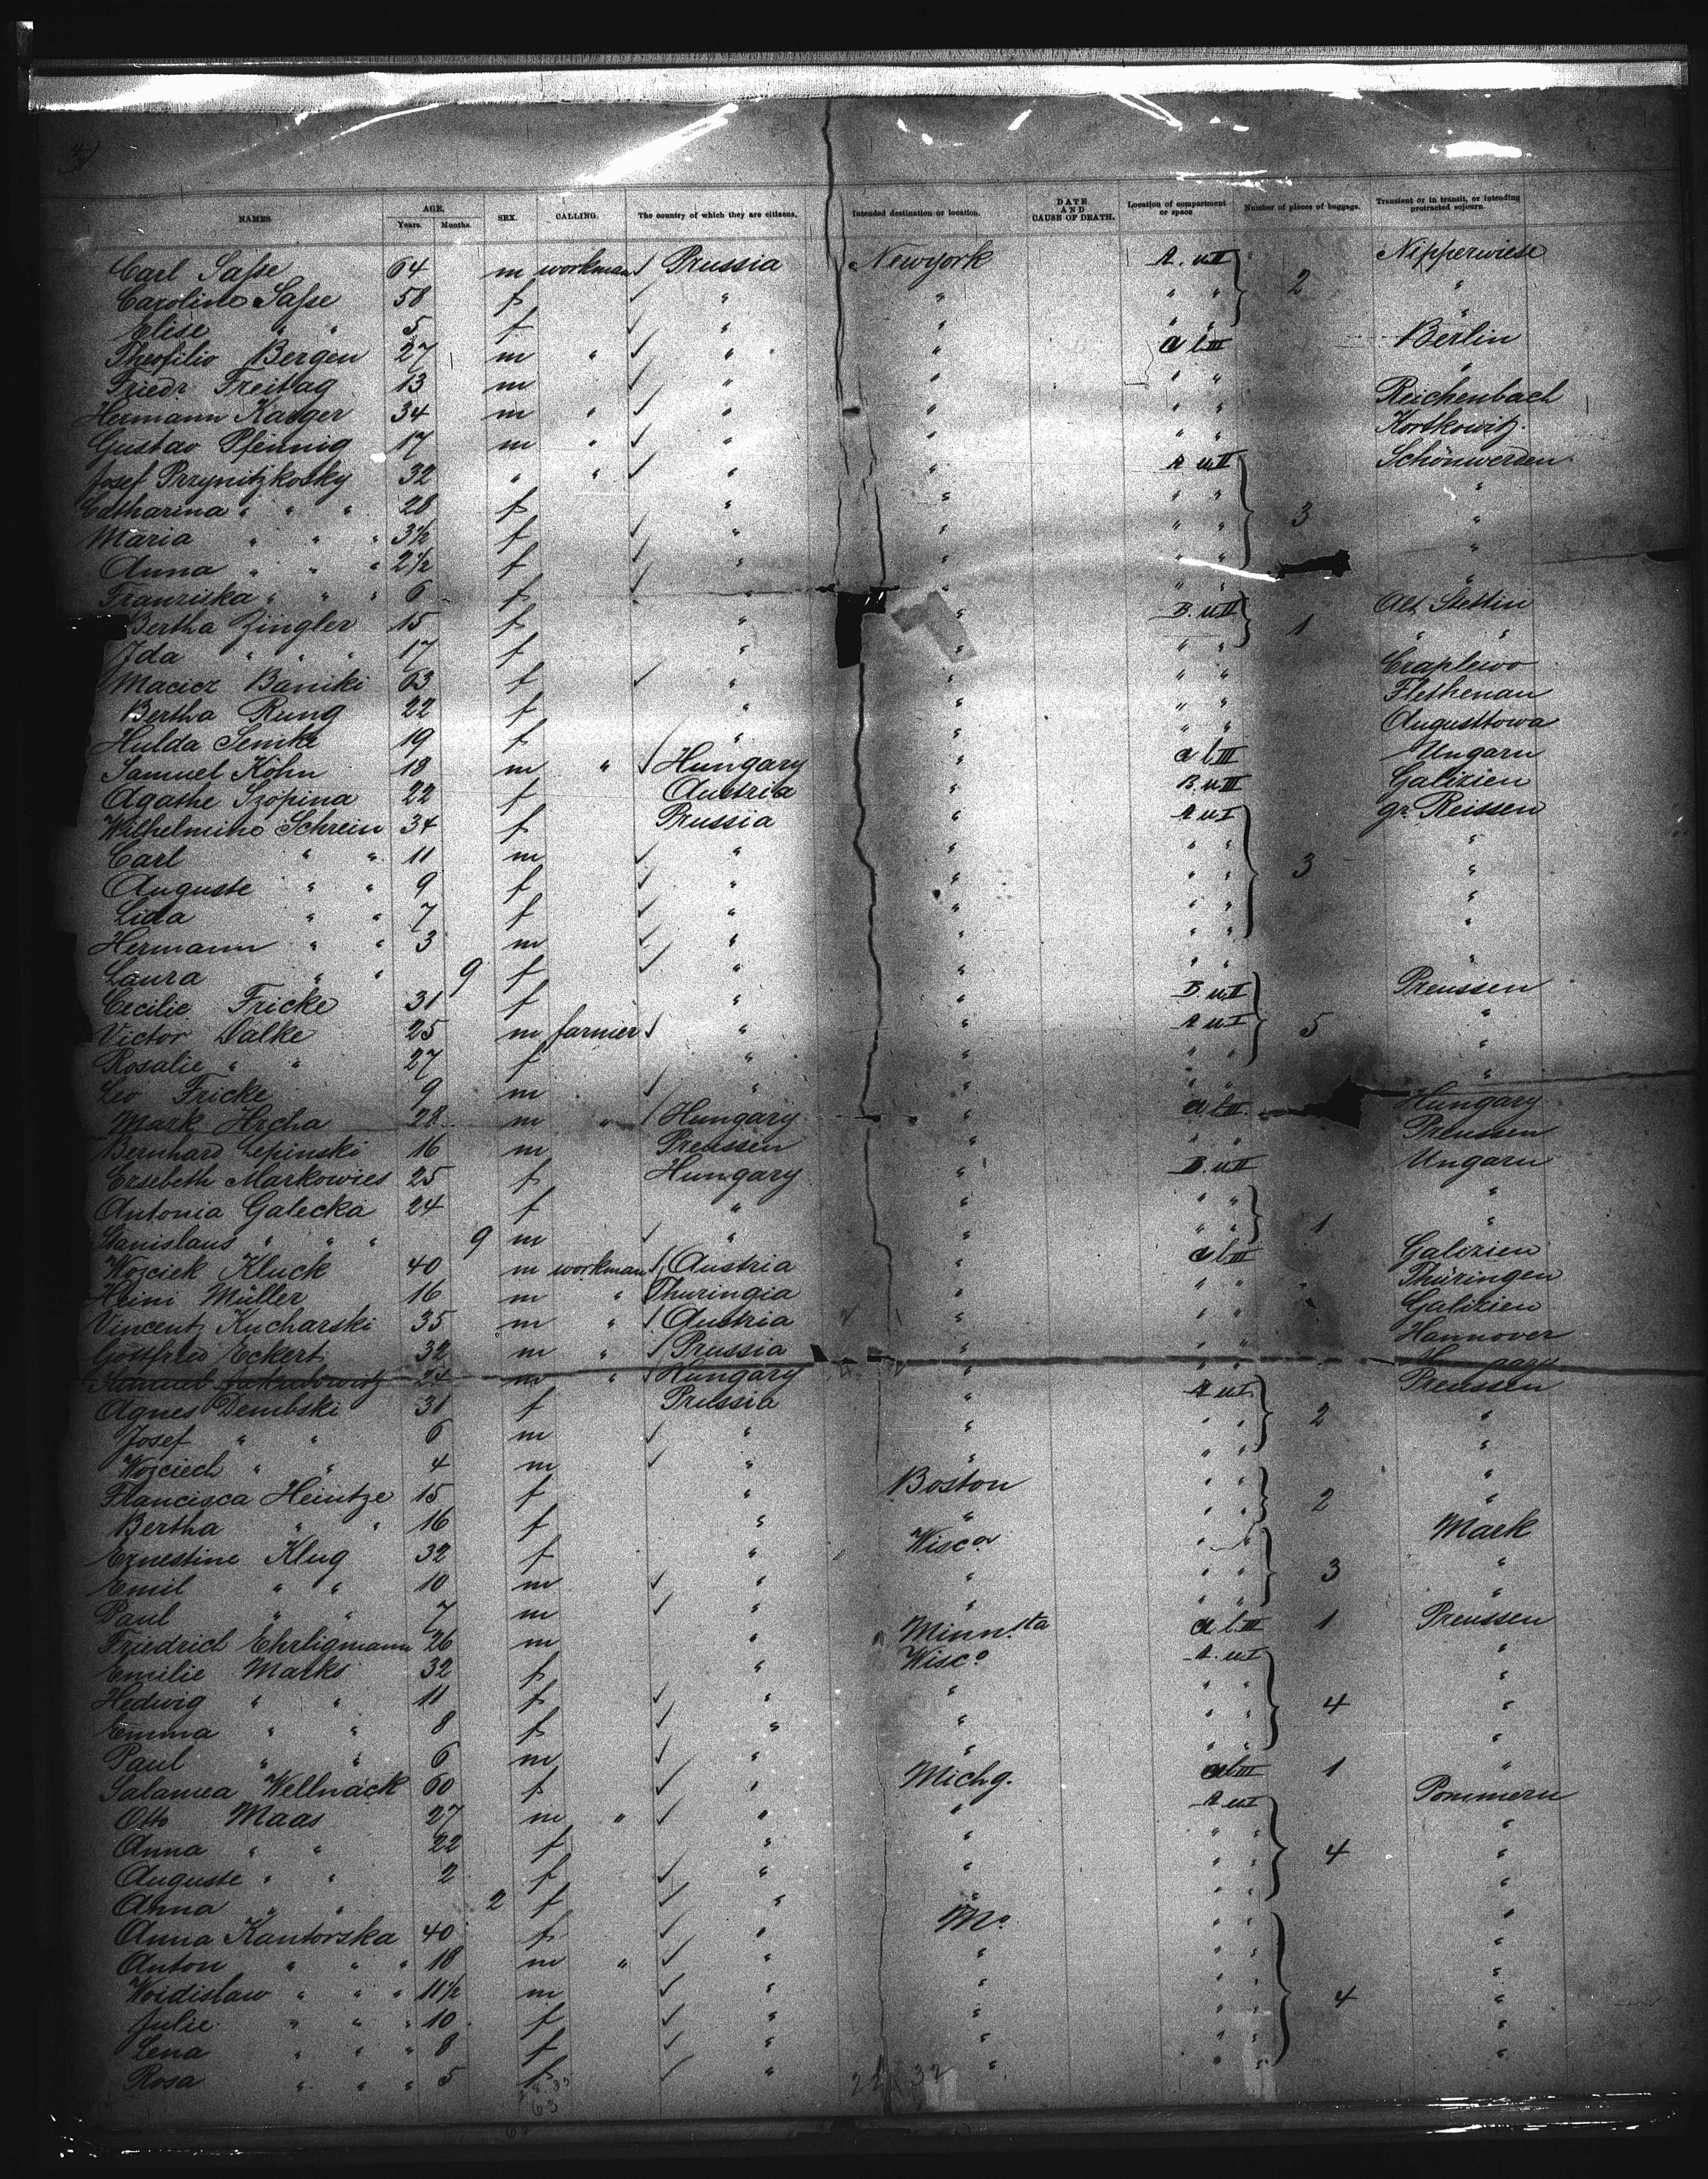 NAMES. AGE. Years. Months. SEX. CALLING. The country of which they are citizens. Intended destination or location. DATE AND CAUSE OF DEATH. Location of compartment or space Number of pieces of baggage. Transient or in transit, or intending protracted sojourn.
Carl Saſse 64 m workman Prussia Newyork A. u II 2 Nipperwiese
Caroline Saſse 58 f " " " " "
Elise " " 5 f " " " " "
Theofilio Bergen 27 m " " " a l III Berlin
Friedr. Freitag 13 m " " " " "
Hermann Karger 34 m " " " " " Reichenbach
Gustav Pfennig 17 m " " " " " Kortkowitz
Josef Przynitzkosky 32 " " " " A u II 3 Schönwerden
Catharina " " " 28 f " " " " "
Maria " " " 3½ f " " " " "
Anna " " " 2½ f " " " " "
Franziska " " " 6 f " " " " "
Bertha Zingler 15 f " " B. u II 1 Alt Stettin
Ida " " " 17 f " " " " " "
Maciez Baniki 63 f " " " " Czaplewo
Bertha Rung 22 f " " " " Flethenau
Hulda Semke 19 f " " " " Augusttowa
Samuel Köhn 18 m " Hungary " a l III Ungarn
Agathe Szopina 22 f Austria " B. u III Galizien
Wilhelmine Schrein 34 f Prussia " A u I 3 gr. Reissen
Carl " " 11 m " " " " "
Auguste " " 9 f " " " " "
Lida " " 7 f " " " " "
Hermann " " 3 m " " " " "
Laura " " 9 f " " " " "
Cecilie Fricke 31 f " " B. u II 5 Preussen
Victor Dalke 25 m farmer " " A u I "
Rosalie " " 27 f " " " " "
Leo Fricke 9 m " " " " "
Mark Hrcha 28 m " Hungary " a l III Hungary
Bernhard Lepinski 16 m Preussen " " " Preussen
Erzebeth Markowies 25 f Hungary " B. u II Ungarn
Antonia Galecka 24 f " " " " 1 "
Stanislaus " " " 9 m " " " " "
Wojciek Kluck 40 m workman Austria " a l III Galizien
Heini Müller 16 m " Thuringia " " " Thüringen
Vincentz Kucharski 35 m " Austria " " " Galizien
Gottfried Eckert 32 m " Prussia " " " Hannover
Samuel Jakubowitz 24 m " Hungary " " "
Agnes Dembski 31 f Prussia " A u I 2 Preussen
Josef " " 6 m " " " " "
Wojciech " " 4 m " " " " "
Francisca Heintze 15 f " Boston " " 2 "
Bertha " " 16 f " " " " "
Ernestine Klug 32 f " Wisco " " 3 Mark
Emil " " 10 m " " " " "
Paul " " 7 m " " " " "
Friedrich Ehrligmann 26 m " Minn.ta a l. III 1 Preussen
Emilie Marks 32 f " Wisco A. u I 4 "
Hedwig " " 11 f " " " " "
Emma " " 8 f " " " " "
Paul " " 6 m " " " " "
Salamea Wellnack 60 f " Michg. a l III 1 "
Otto Maas 27 m " " " A u I 4 Pommern
Anna " " 22 f " " " " "
Auguste " " 2 f " " " " "
Anna " " 2 f " " " " "
Anna Kantorska 40 f " Mo " " 4 "
Anton " " " 18 m " " " " " "
Woidislaw " " " 11½ m " " " " "
Julie " " " 10 f " " " " "
Lena " " " 8 f " " " " "
Rosa " " " 5 f " " " " "
63